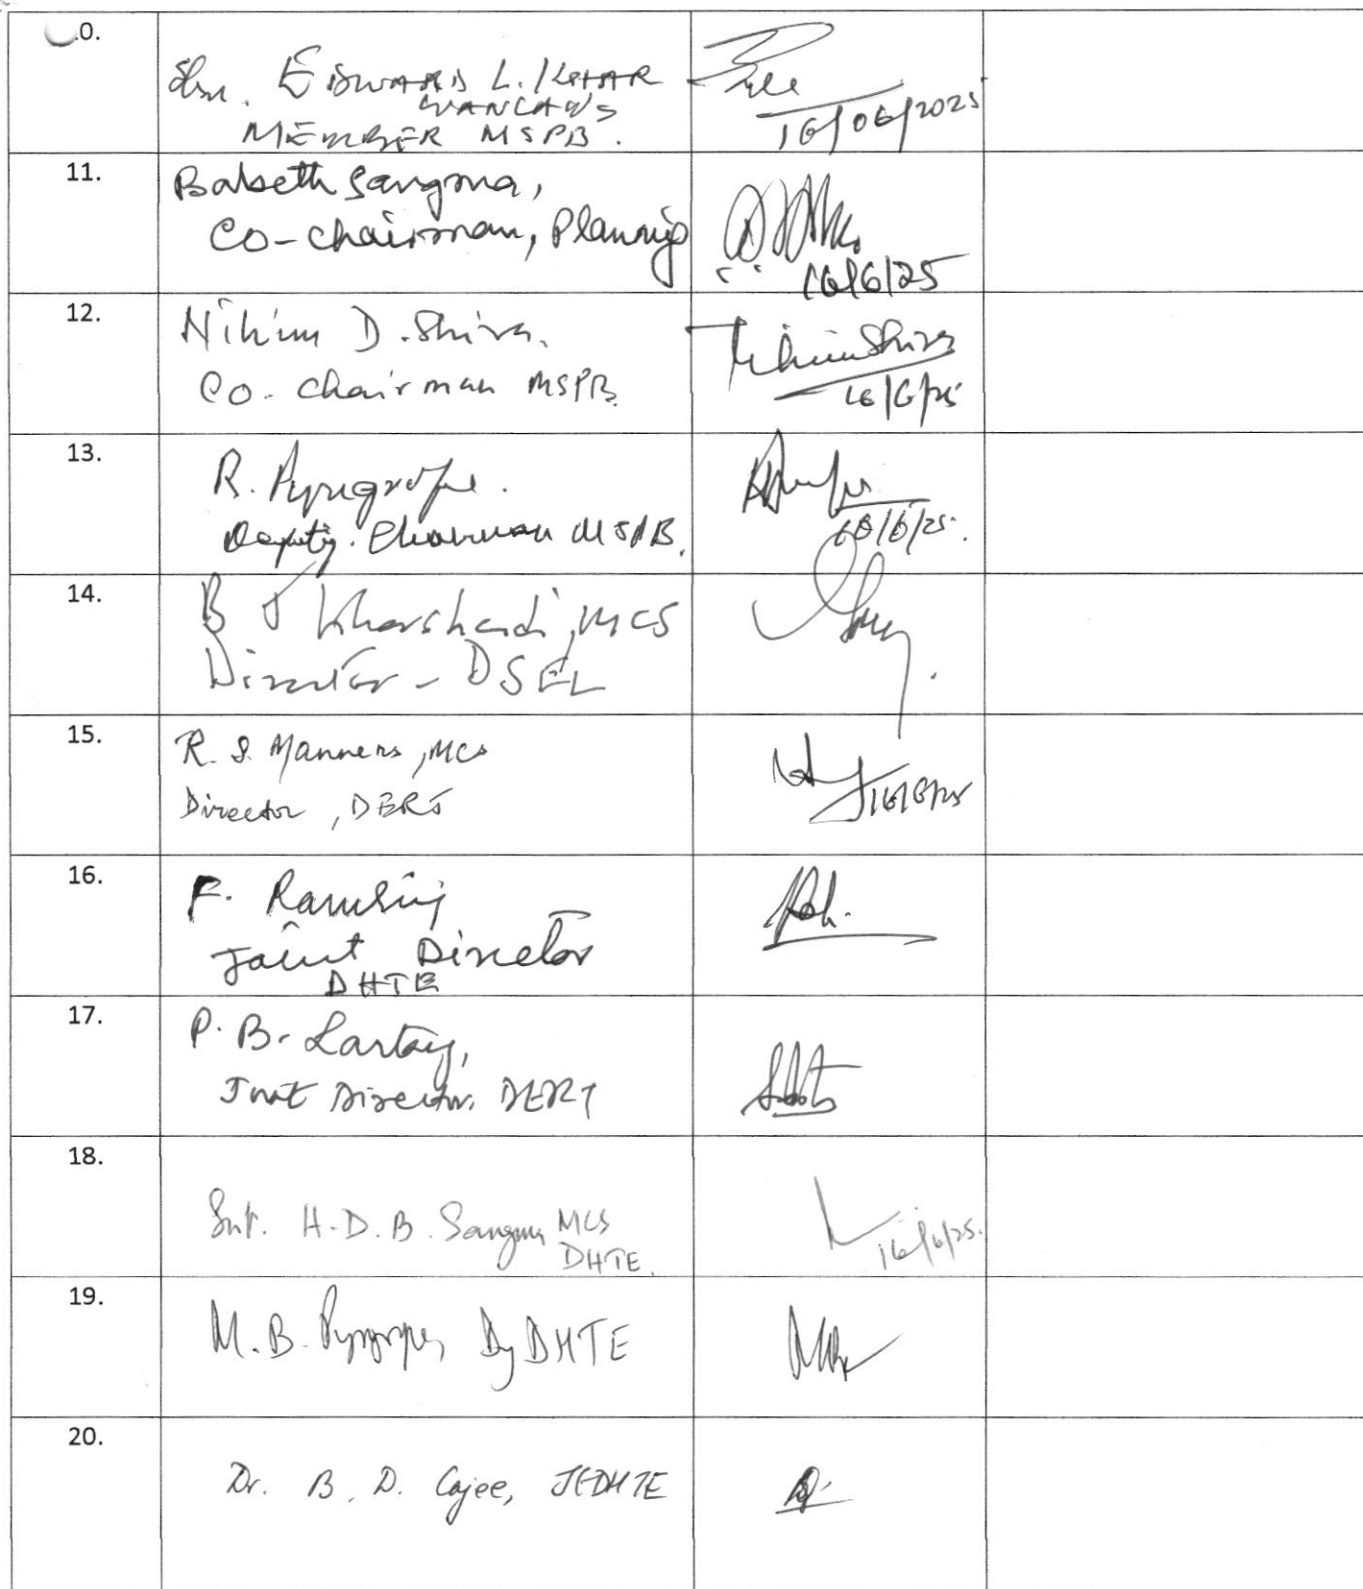 0.
Shri. EDWARD L. KHAR
WANLANG
MEMBER MSPB.
16/06/2025
11.
Babeth Sangma,
Co-chairman, Planning
16/6/25
12.
Nihim D. Shira.
Co. Chairman MSPB.
Nihim Shira
16/6/25
13.
R. Pyngrope.
Deputy. Chairman MSPB.
16/6/25.
14.
B J Kharshandi, MCS
Director - DSEL
15.
R. S. Manners, MCS
Director, DERT
16/6/25
16.
F.
Joint Director
DHTE
17.
P. B. Lartang,
Joint Director, DERT
18.
Smt. H. D. B. Sangma MCS
DHTE.
16/6/25.
19.
M. B. Pyngrope, Dy DHTE
20.
Dr. B. D. Cajee,